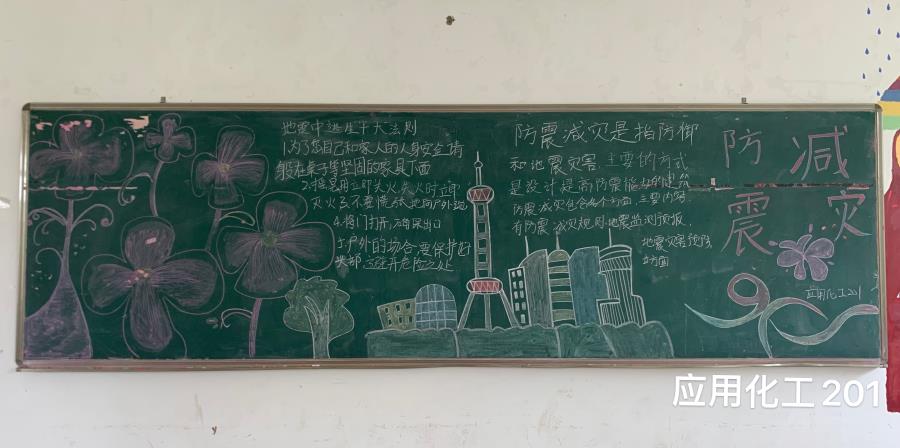 地震中逃生十大法则
1.为了您自己和家人的人身安全请
躲在桌子等坚固的家具下面
2.摇晃时立即关火,失火时立即
灭火 3.不要慌张地向户外跑
4.将门打开,确保出口
5.户外的场合,要保护好
头部,避开危险之处
防震减灾是指防御
和地震灾害主要的方式
是设计提高防震能力的建筑
防震减灾包含各个方面,主要内容
有防震减灾规划,地震监测预报
地震灾害预防
方面
防减
震灾
应用化工201
应用化工 201